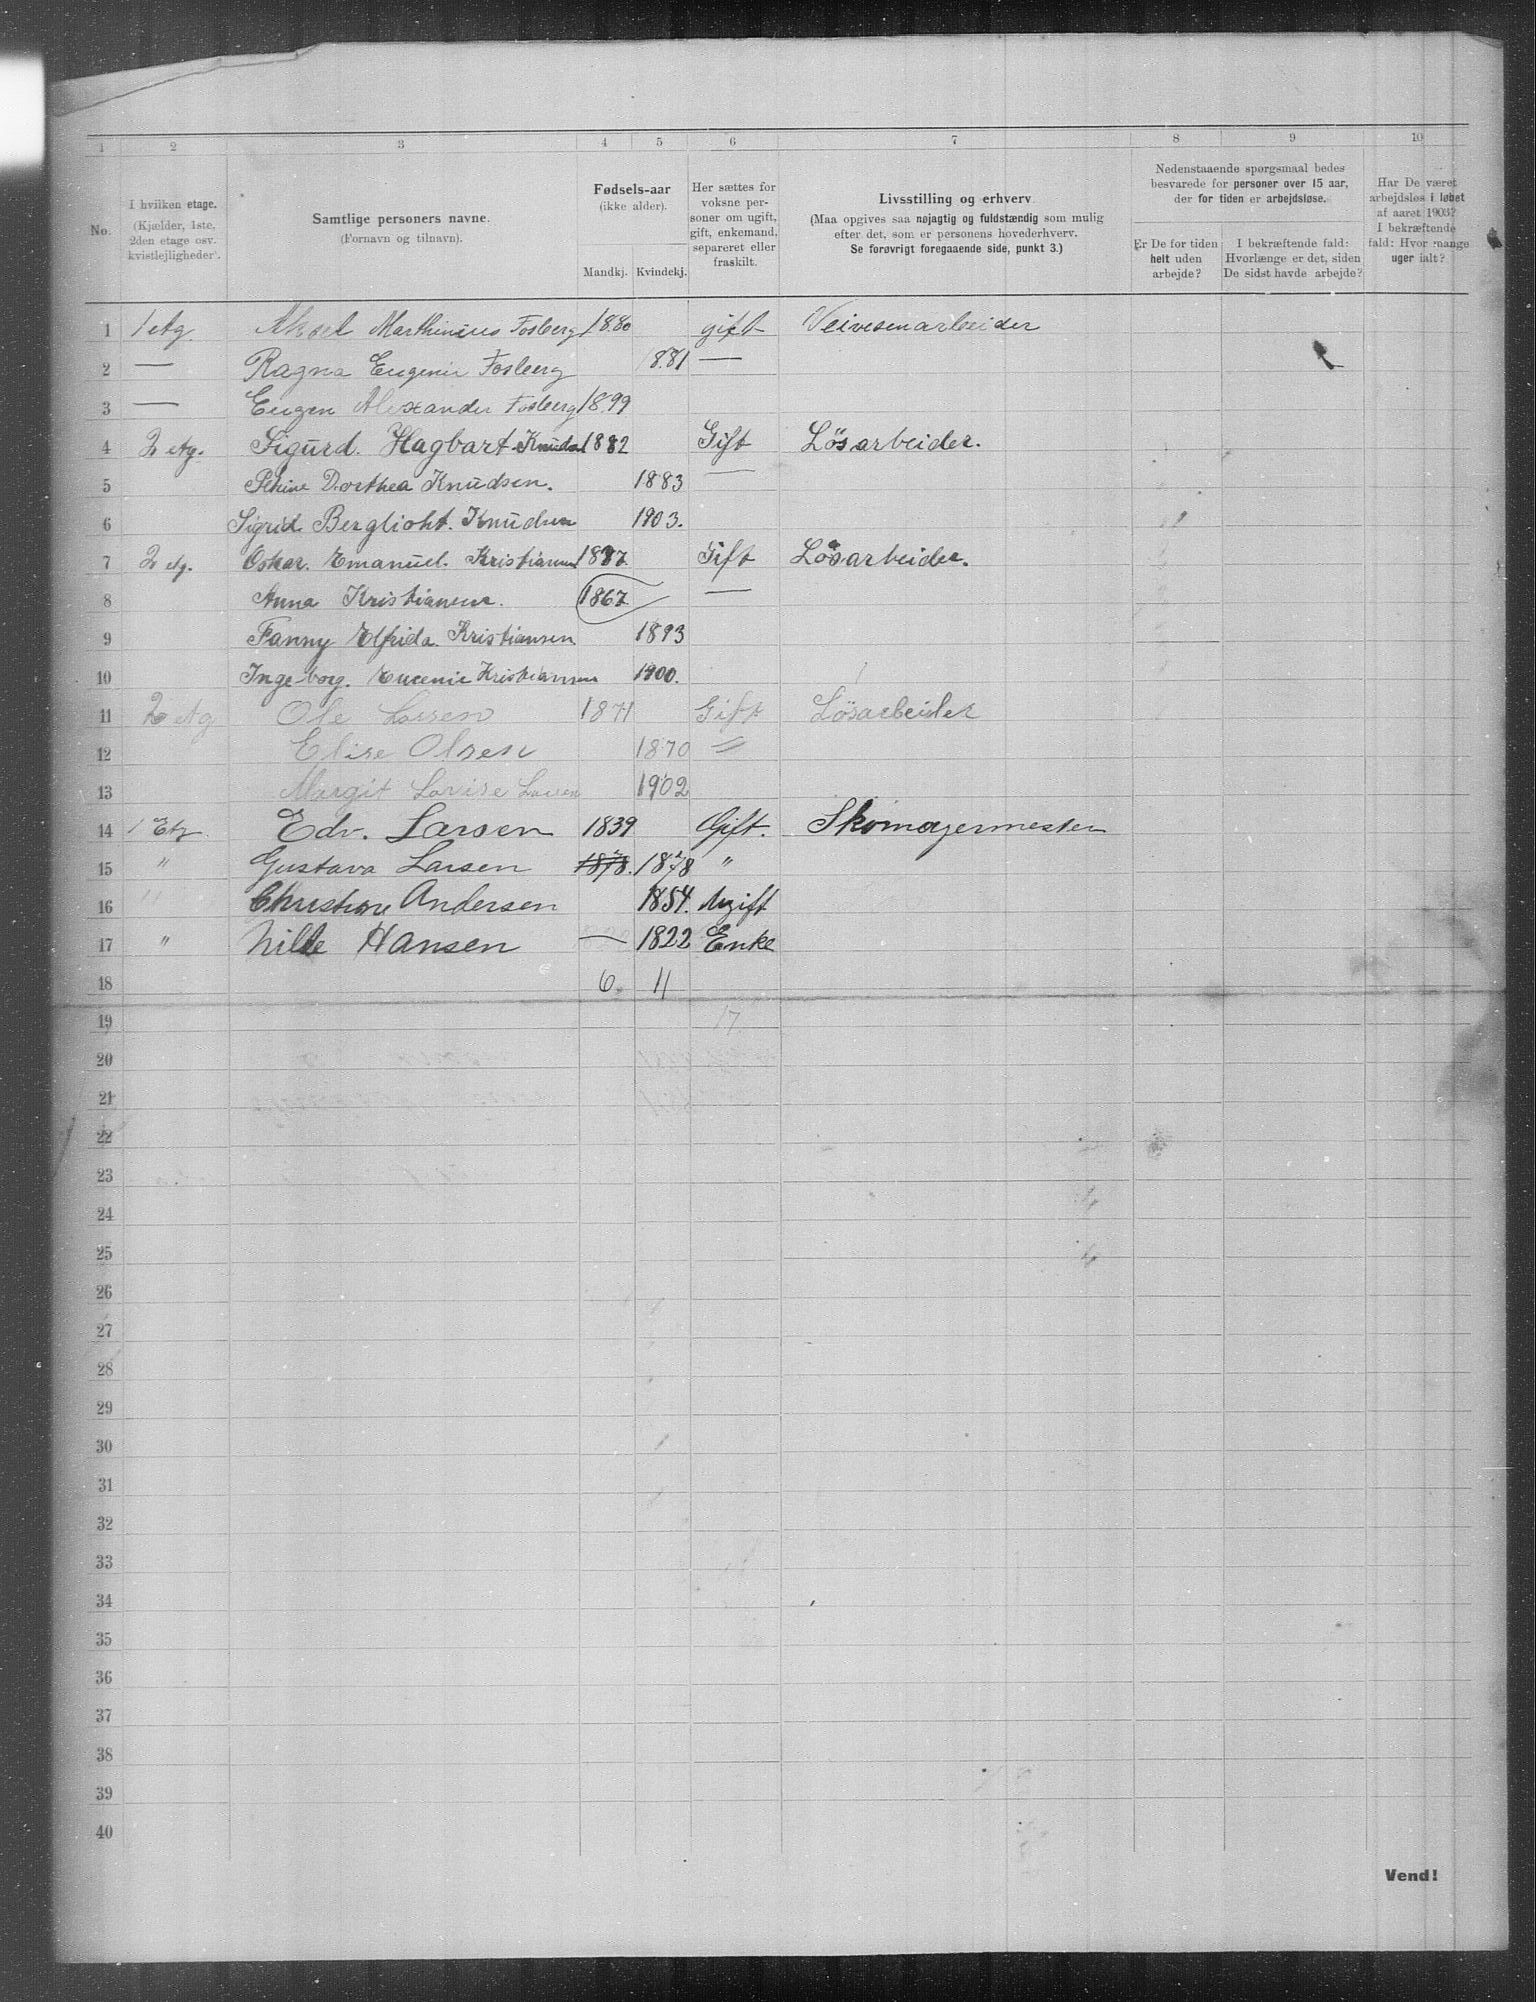 1 2 3 4 5 6 7 8 9 10
No.
I hvilken etage.
(Kjælder, 1ste, 2den etage osv. kvistlejligheder).
Samtlige personers navne.
(Fornavn og tilnavn).
Fødsels-aar
(ikke alder).
Mandkj. Kvindekj.
Her sættes for voksne personer om ugift, gift, enkemand, separeret eller fraskilt.
Livsstilling og erhverv.
(Maa opgives saa nøjagtig og fuldstændig som mulig
efter det, som er personens hovederhverv.
Se forøvrigt foregaaende side, punkt 3.)
Nedenstaaende spørgsmaal bedes
besvarede for personer over 15 aar,
der for tiden er arbejdsløse.
Er De for tiden
helt uden
arbejde?
I bekræftende fald:
Hvorlænge er det, siden
De sidst havde arbejde?
Har De været
arbejdsløs i løbet
af aaret 1903?
I bekræftende
fald: Hvor mange
uger ialt?
1 1 etg. Aksel Marthinius Fosberg 1880 gift Veivesenarbeider
2 — Ragna Eugenie Fosberg 1881 —
3 — Eugen Alexander Fosberg 1899
4 2 etg. Sigurd. Hagbart Knuds 1882 Gift Lösarbeider.
5 Dorthea Knudsen. 1883 —
6 Sigrid Berglioht. Knudsen 1903.
7 2 etg. Oskar. Emanuel. Kristiansen 1877. Gift Lösarbeider.
8 Anna Kristiansen. 1867 —
9 Fanny Elfrida. Kristiansen 1893
10 Ingeborg. Eugenie Kristiansen 1900.
11 2 etg Ole Larsen 1871 Gift Lösarbeider
12 Elise Olsen 1870 "
13 Margit Lovise Larsen 1902
14 1 Etg. Edv. Larsen 1839 Gift. Skomagermester
15 " Gustava Larsen 1878. 1878 "
16 " Christine Andersen 1854. Ugift
17 " Hansen — 1822 Enke
18 6. 11
19 17
20
21
22
23
24
25
26
27
28
29
30
31
32
33
34
35
36
37
38
39
40
Vend!